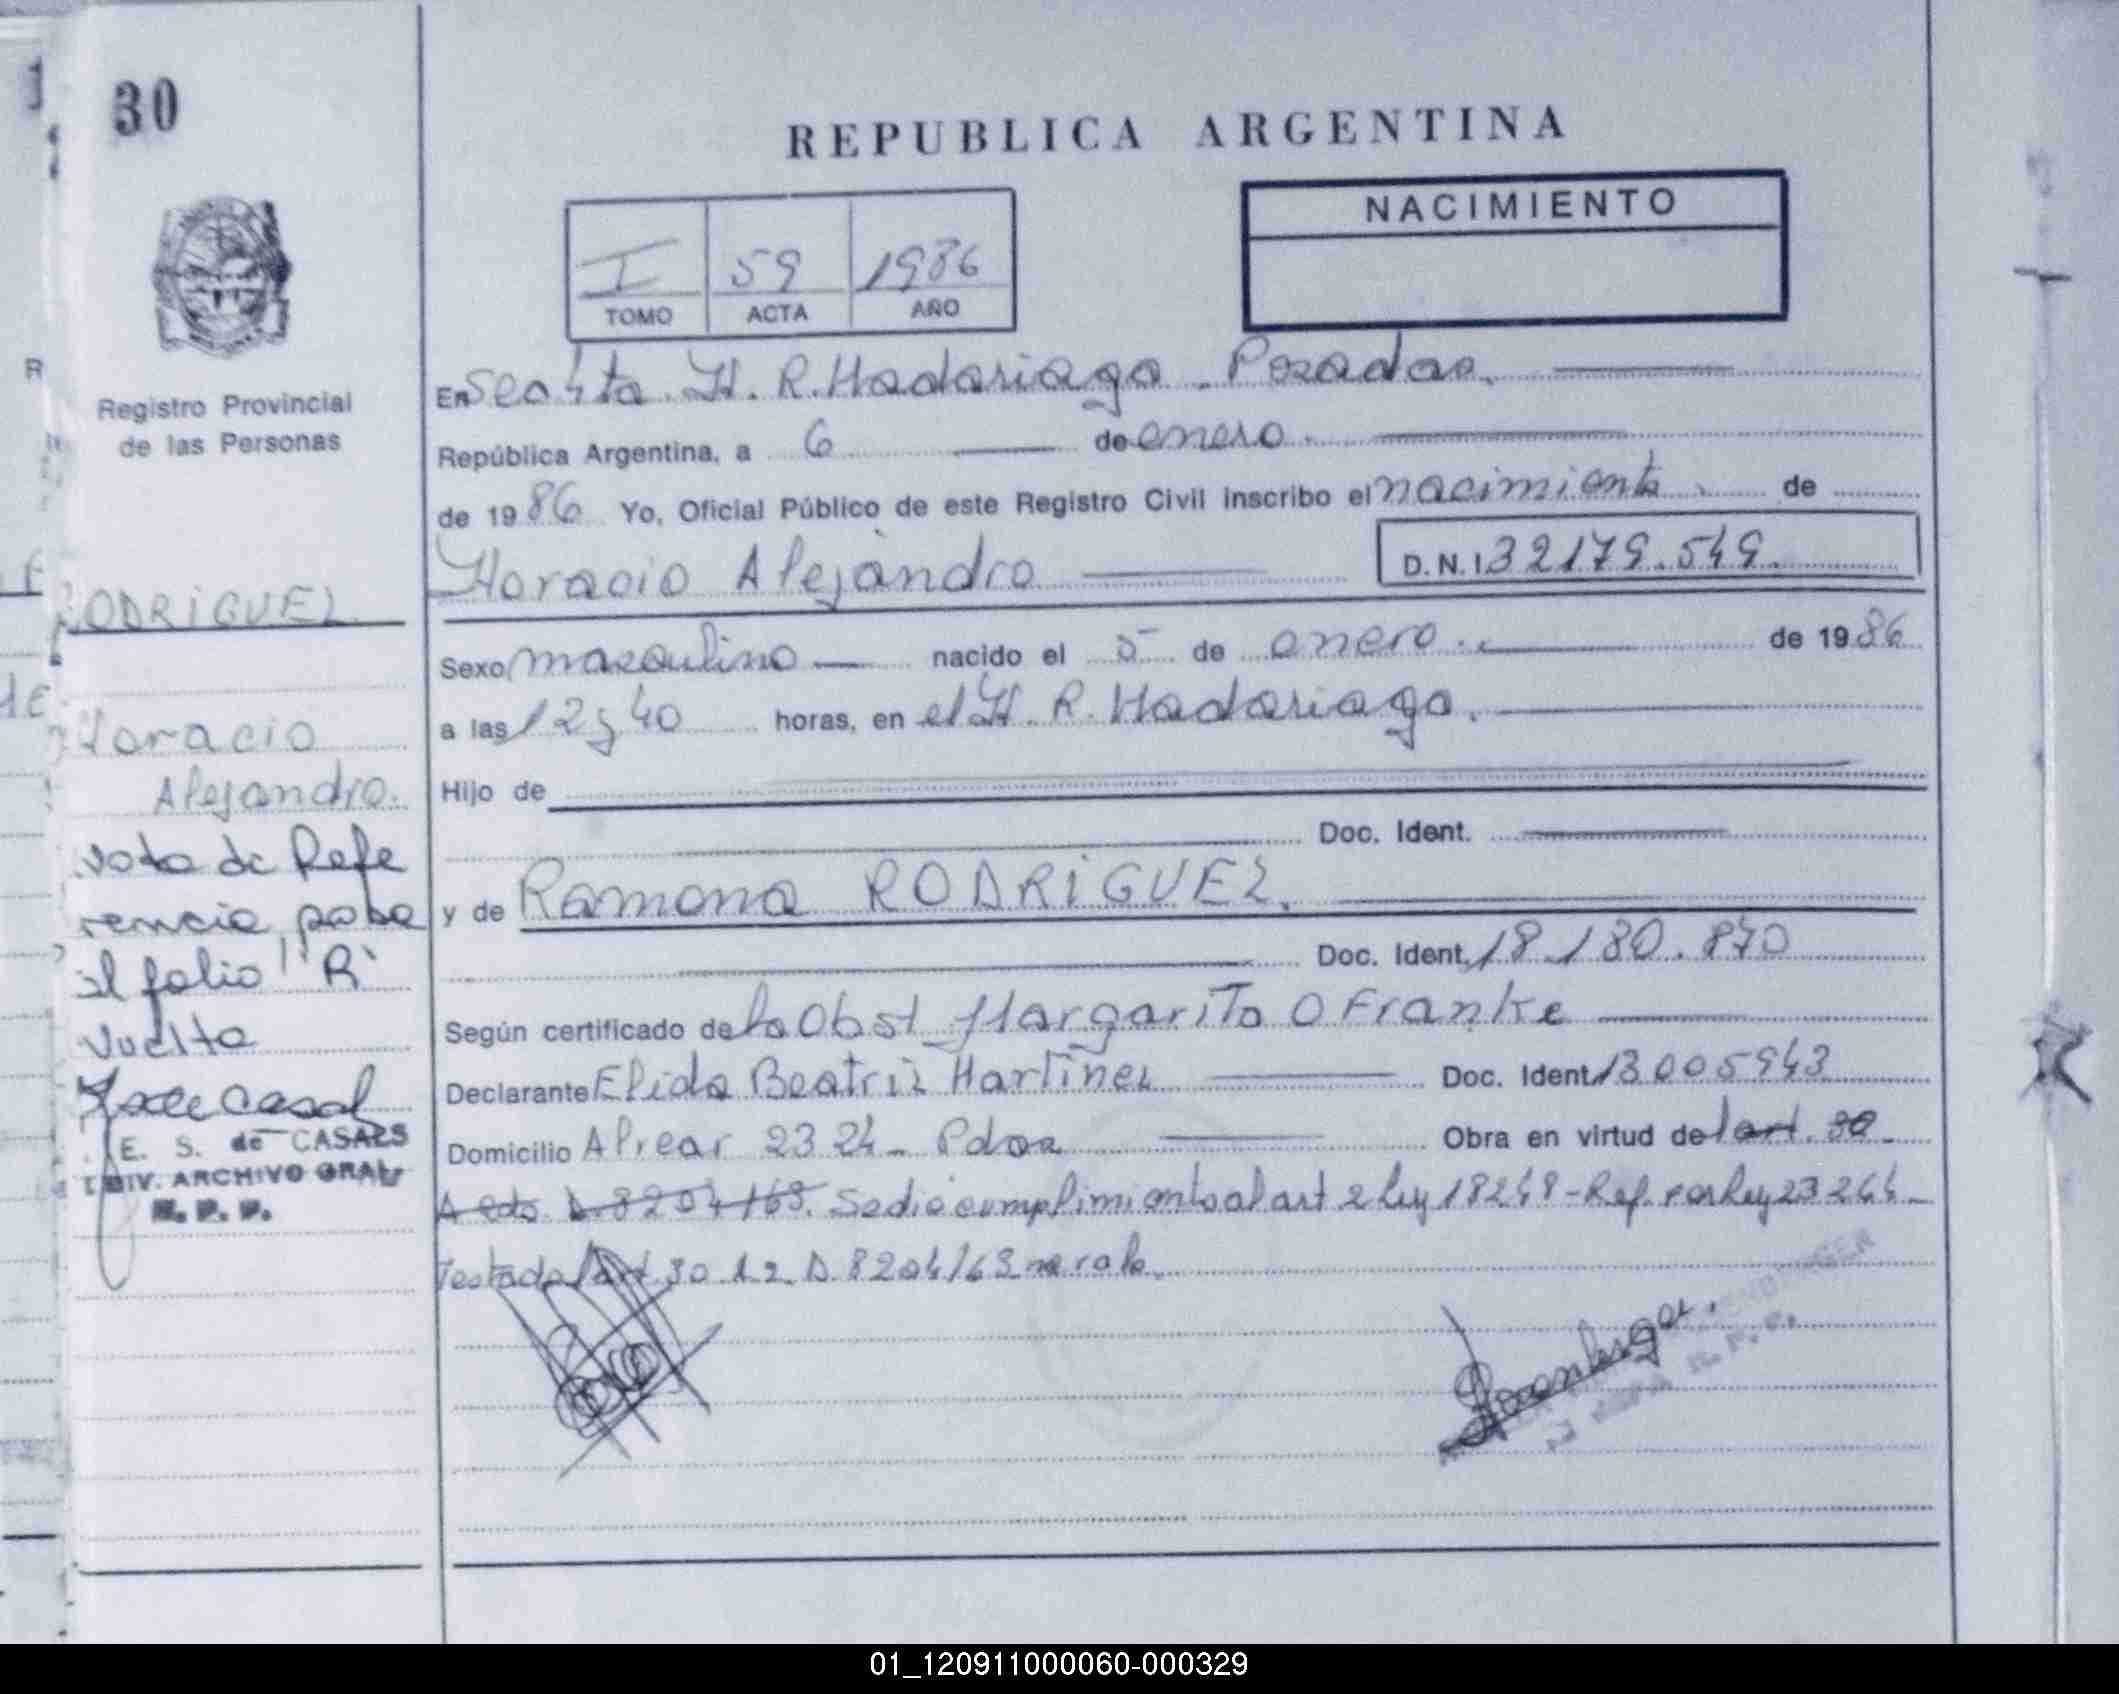 30
REPUBLICA ARGENTINA
NACIMIENTO
I 59 1986
TOMO ACTA AÑO
Registro Provincial
de las Personas
En H. R. Madariaga. Posadas.
República Argentina, a 6 de enero.
de 1986 Yo, Oficial Público de este Registro Civil inscribo el nacimiento de
Horacio Alejandro D.N.I 32179.549.
Sexo masculino nacido el 5 de enero. de 1986
a las 12 y 40 horas, en el H. R. Madariaga.
Hijo de
Doc. Ident.
y de Ramona RODRIGUEZ.
Doc. Ident. 18.180.870
Según certificado de la Obst Margarita O Franke
Declarante Elida Beatriz Martinez Doc. Ident. 13005943
Domicilio Alvear 2324- Pdas Obra en virtud del art. 30
D. 8204/63. Se dio cumplimiento al art 2 Ley 18248-Ref. por Ley 23264-
Testado art 30 D. 8204/63 no vale.
RODRIGUEZ
Horacio
Alejandro.
Nota de Refe
rencia pasa
al folio "R"
vuelta
E. S. de CASALS
DIV. ARCHIVO GRAL
R. P. P.
01_120911000060-000329